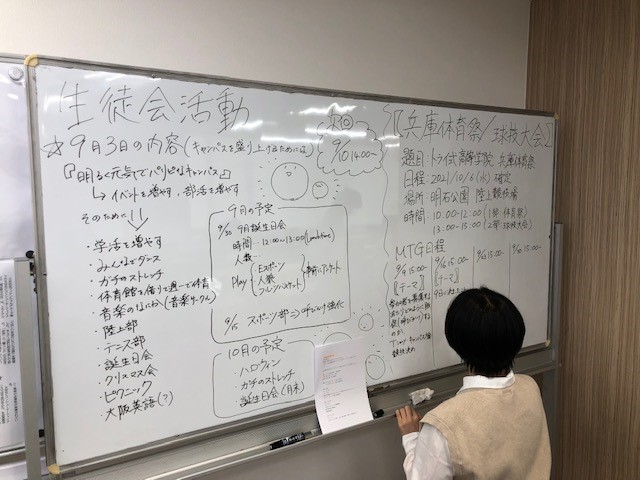 生徒会活動
☆9月3日の内容(キャンパスを盛り上げるためには)
『明るく元気でパリピなキャンパス』
↳イベントを増やす、部活を増やす
そのために
・学活を増やす
・みんなでダンス
・ガチのストレッチ
・体育館を借りて週一で体育
・音楽のなにか(音楽サークル)
・陸上部
・テニス部
・誕生日会
・クリスマス会
・ピクニック
・大阪英語(?)
9月の予定
9/30 9月誕生日会
時間…12:00~13:00(lunch time)
人数…
Play
Eスポーツ
人狼
フルーツバスケット
事前にアンケート
9/15 スポーツ部⇒呼びかけ強化
10月の予定
・ハロウィン
・ガチのストレッチ
・誕生日会(月末)
次回
9/10 14:00~
【兵庫体育祭/球技大会】
題目:トライ式高等学院 兵庫体育祭
日程:2021/10/6(水)確定
場所:明石公園 陸上競技場
時間:10:00-12:00(1部:体育祭)
13:00-15:00(2部:球技大会)
MTG日程
9/9 15:00-
【テーマ】
9/16 15:00-
【テーマ】